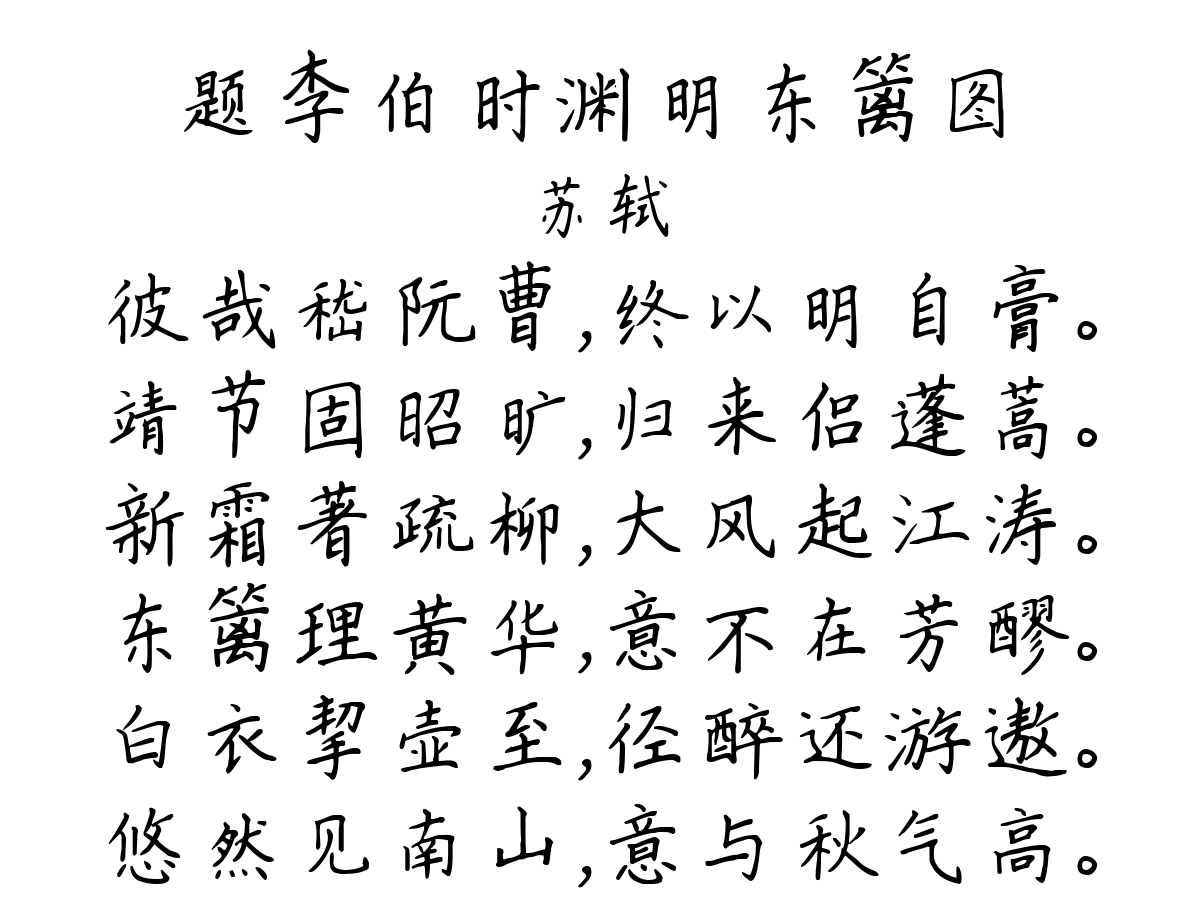 题李伯时渊明东篱图
苏轼
彼哉嵇阮曹,终以明自膏。
靖节固昭旷,归来侣蓬蒿。
新霜著疏柳,大风起江涛。
东篱理黄华,意不在芳醪。
白衣挈壶至,径醉还游遨。
悠然见南山,意与秋气高。